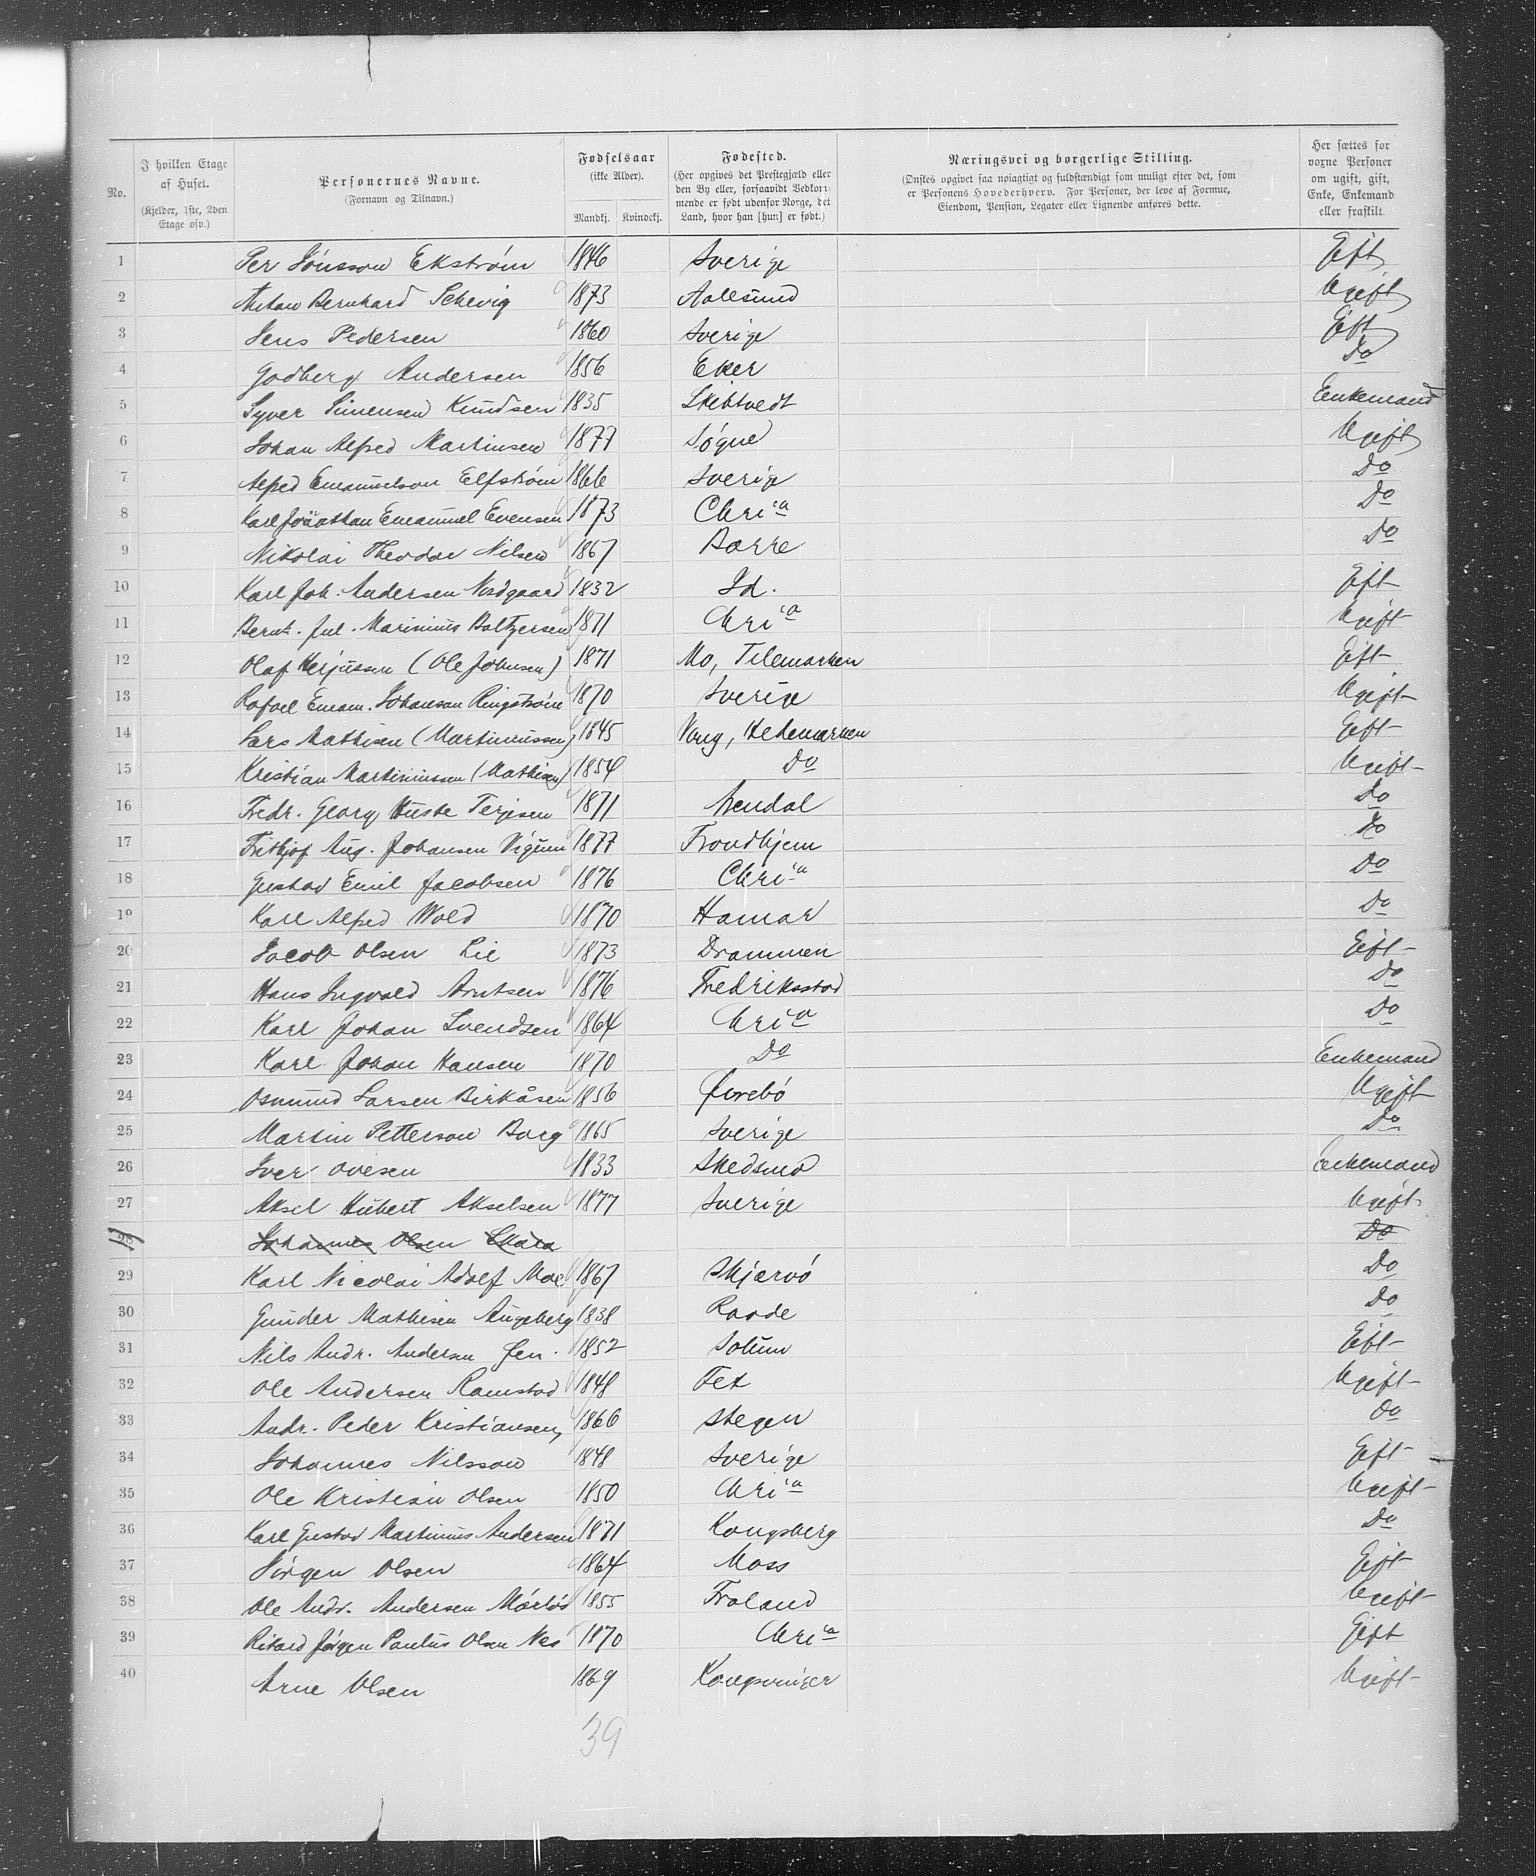 No. | I hvilken Etage af Huset. (Kjelder, 1ste, 2den Etage osv.) | Personernes Navne. (Fornavn og Tilnavn.) | Fødselsaar (ikke Alder). Mandkj. Kvindekj. | Fødested. (Her opgives det Prestegjæld eller den By eller, forsaavidt Vedkommende er født udenfor Norge, det Land, hvor han [hun] er født.) | Næringsvei og borgerlige Stilling. (Ønskes opgivet saa nøiagtigt og fuldstændigt som muligt efter det, som er Personens Hovederhverv. For Personer, der leve af Formue, Eiendom, Pension, Legater eller Lignende anføres dette. | Her sættes for voxne Personer om ugift, gift, Enke, Enkemand eller fraskilt.
1 Per Jönsson Ekstrøm 1846 Sverige Gift
2 Anton Bernhard Schevig 1873 Aalesund Ugift
3 Jens Pedersen 1860 Sverige Gift
4 Godberg Andersen 1856 Eker Do
5 Syver Simensen Knudsen 1835 Skibtvedt Enkemand
6 Johan Alfred Martinsen 1877 Søgne Ugift
7 Alfred Emanuelson Elfstrøm 1866 Sverige Do
8 Karl Jonathan Emanuel Evensen 1873 Chria Do
9 Nikolai Theodor Nilsen 1867 Borre Do
10 Karl Joh. Andersen Nordgaard 1832 Id. Gift
11 Bernt. Jul. Marinius Baltzersen 1871 Chria Ugift
12 Olaf Herjussen (Ole Johnsen) 1871 Mo, Telemarken Gift
13 Rafael Emam. Johanson Ringstrøm 1870 Sverige Ugift
14 Lars Mathisen (Martinussen) 1845 Vang, Hedemarken Gift
15 Kristian Martiniussen (Mathisen) 1854 Do Ugift
16 Fredr. Georg Huste Terjesen 1871 Arendal Do
17 Frithjof Aug. Johansen Vigum 1877 Trondhjem Do
18 Gustav Emil Jacobsen 1876 Chria Do
19 Karl Alfred Wold 1870 Hamar Do
20 Jacob Olsen Lie 1873 Drammen Gift
21 Hans Ingvald Arntsen 1876 Fredriksstad Do
22 Karl Johan Svendsen 1864 Chria Do
23 Karl Johan Hansen 1870 Do Enkemand
24 Osmund Larsen Birkåsen 1856 Øvrebø Ugift
25 Martin Petterson Borg 1865 Sverige Do
26 Iver Ovesen 1833 Skedsmo Enkemand
27 Aksel Hubert Akselsen 1877 Sverige Ugift
28 Johannes Olsen Do
29 Karl Nicolai Adolf Moe 1867 Skjærvø Do
30 Gunder Mathisen Augeberg 1838 Raade Do
31 Nils Andr. Andersen Jen. 1852 Solum Gift
32 Ole Andersen Ramstad 1848 Fet Ugift
33 Andr. Peder Kristiansen, 1866 Stegen Do
34 Johannes Nilsson 1848 Sverige Gift
35 Ole Kristian Olsen 1850 Chria Ugift
36 Karl Gustav Martinius Andersen 1871 Kongsberg Do
37 Jörgen Olsen 1864 Moss Gift
38 Ole Andr. Andersen 1855 Froland Ugift
39 Rikard Jørgen Paulus Olsen Nes 1870 Chria Gift
40 Arne Olsen 1869 Kongsvinger Ugift
39